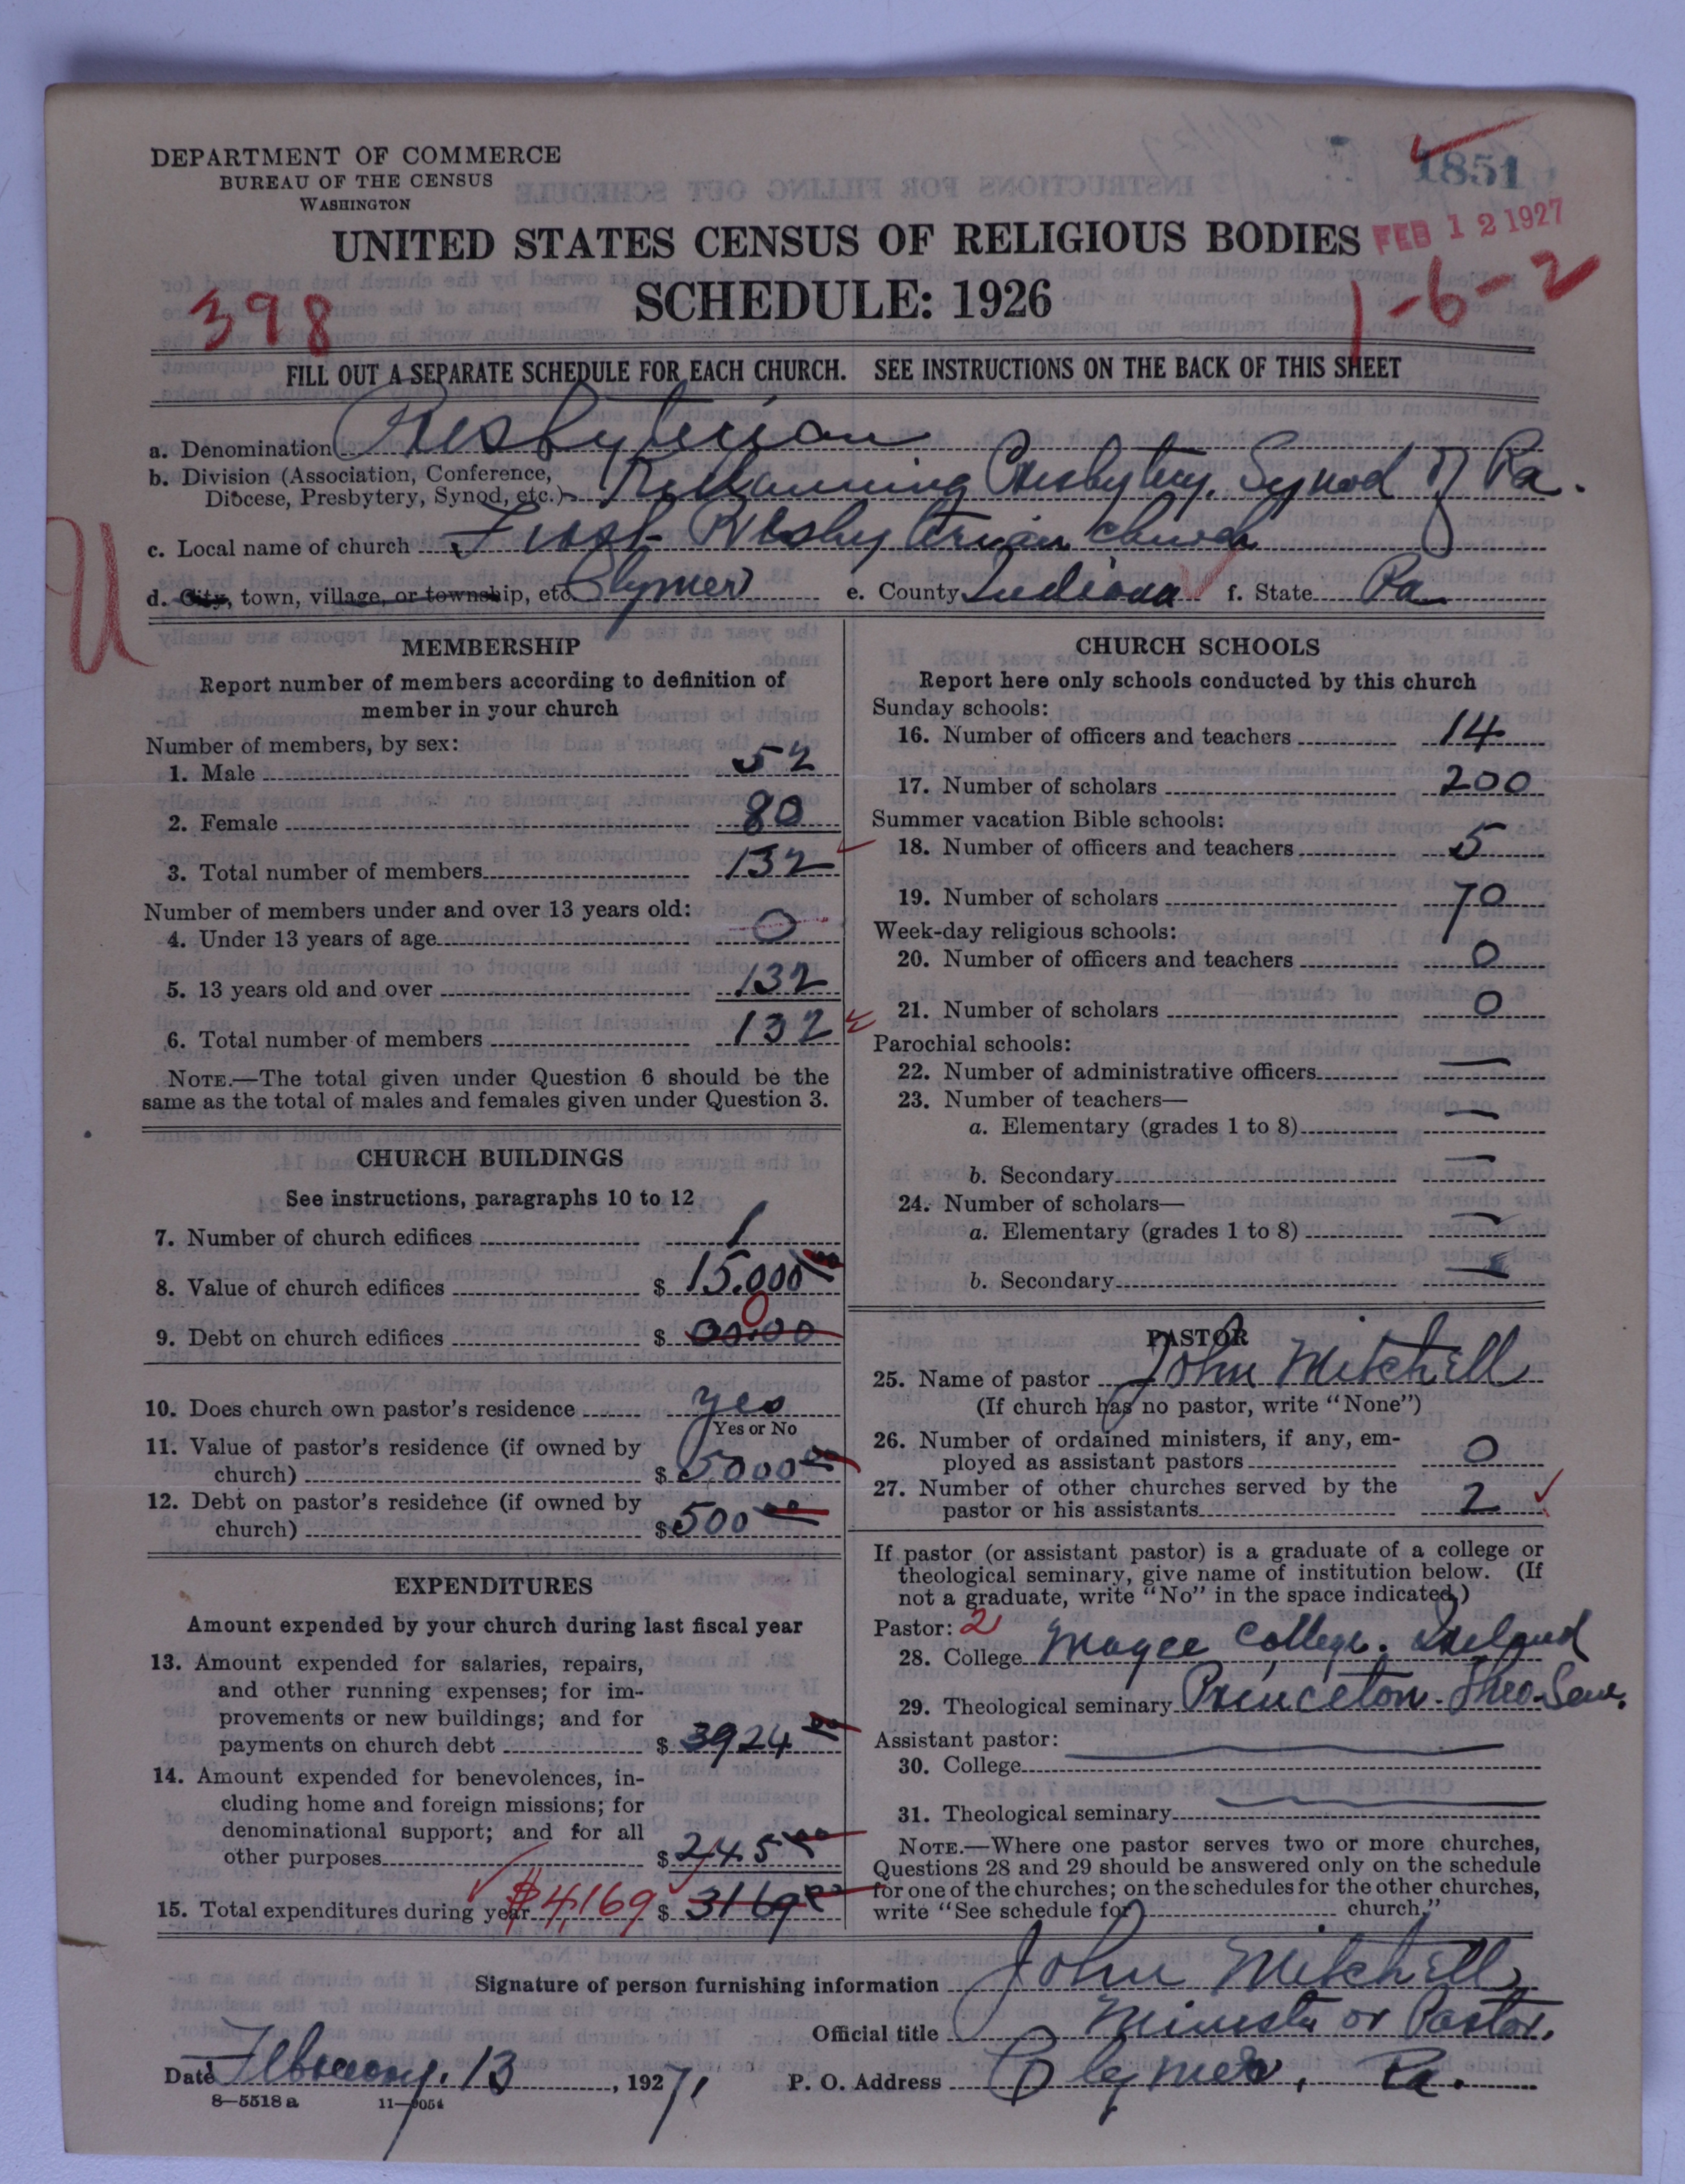 1851
DEPARTMENT OF COMMERCE
BUREAU OF THE CENSUS
WASHINGTON
UNITED STATES CENSUS OF RELIGIOUS BODIES
FEB 12 1927
SCHEDULE: 1926
398
1-6-2
FILL OUT A SEPARATE SCHEDULE FOR EACH CHURCH. SEE INSTRUCTIONS ON THE BACK OF THIS SHEET
a. Denomination Presbyterian
b. Division (Association, Conference,
Diocese, Presbytery, Synod, etc.) Kittanning Presbytery, Synod of Pa.
c. Local name of church First Presbyterian church
d. City, town, village, or township, etc. Clymer e. County Indiana f. State Pa
U
MEMBERSHIP
Report number of members according to definition of
member in your church
Number of members, by sex:
1. Male 52
2. Female 80
3. Total number of members 132
Number of members under and over 13 years old:
4. Under 13 years of age 0
5. 13 years old and over 132
6. Total number of members 132
NOTE.—The total given under Question 6 should be the
same as the total of males and females given under Question 3.
CHURCH BUILDINGS
See instructions, paragraphs 10 to 12
7. Number of church edifices 1
8. Value of church edifices $ 15.000 00
0
9. Debt on church edifices $ 00.00
10. Does church own pastor's residence yes
Yes or No
11. Value of pastor's residence (if owned by
church) $ 5000 00
12. Debt on pastor's residence (if owned by
church) $ 500 00
EXPENDITURES
Amount expended by your church during last fiscal year
13. Amount expended for salaries, repairs,
and other running expenses; for im-
provements or new buildings; and for
payments on church debt $ 3924 00
14. Amount expended for benevolences, in-
cluding home and foreign missions; for
denominational support; and for all
other purposes $ 245 00
15. Total expenditures during year $4,169 $ 3169 00
CHURCH SCHOOLS
Report here only schools conducted by this church
Sunday schools:
16. Number of officers and teachers 14
17. Number of scholars 200
Summer vacation Bible schools:
18. Number of officers and teachers 5
19. Number of scholars 70
Week-day religious schools:
20. Number of officers and teachers 0
21. Number of scholars 0
Parochial schools:
22. Number of administrative officers —
23. Number of teachers—
a. Elementary (grades 1 to 8) —
b. Secondary —
24. Number of scholars—
a. Elementary (grades 1 to 8) —
b. Secondary —
PASTOR
25. Name of pastor John Mitchell
(If church has no pastor, write "None")
26. Number of ordained ministers, if any, em-
ployed as assistant pastors 0
27. Number of other churches served by the
pastor or his assistants 2
If pastor (or assistant pastor) is a graduate of a college or
theological seminary, give name of institution below. (If
not a graduate, write "No" in the space indicated.)
Pastor: 2
28. College Magee College. Ireland
29. Theological seminary Princeton. Theo. Sem.
Assistant pastor:
30. College
31. Theological seminary
NOTE.—Where one pastor serves two or more churches,
Questions 28 and 29 should be answered only on the schedule
for one of the churches; on the schedules for the other churches,
write "See schedule for church."
Signature of person furnishing information John Mitchell
Official title Minister or Pastor.
Date February. 13, 1927. P. O. Address Clymer, Pa.
8—5518 a 11—9054